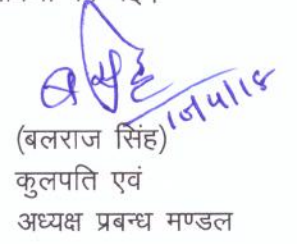 (बलराज सिंह)
कुलपति एवं
अध्यक्ष प्रबन्ध मण्डल